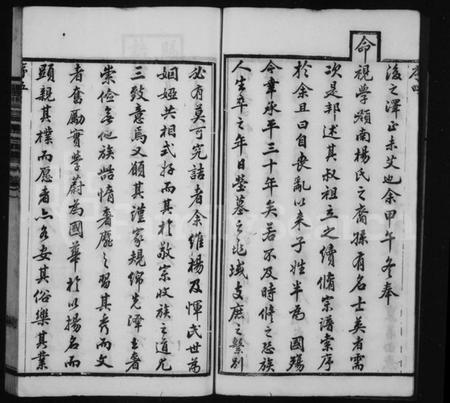 序四
後之澤正未艾也余甲午冬奉
命視學滇南楊氏之裔孫有名士英者需
次是邦述其叔祖立之續脩宗譜索序
於余且曰自喪亂以來子姓半為國殤
今幸承平三十年矣若不及時脩之恐族
人生卒之年日塋墓之地域支庶之繁別
必有莫可究詰者余維楊及惲氏世為
姻婭共相式好而其於敬宗收族之道尤
三致意焉又願其謹家規綿先澤土著
崇儉名他族踏惰奢靡之習其秀而文
者奮勵實學蔚為國華於以揚名而
顯親其樸而愿者亦各安其俗樂其業
序五